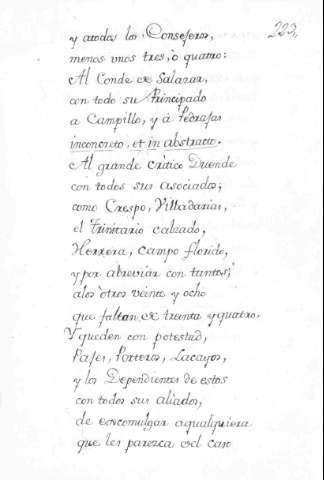 223,
y atodos los, Consejeros,
menos unos tres, ò quatro:
Al Conde de Salazar,
con todo su Principado
a Campillo, y à Pedrajas
inconcreto, et in abstracto.
Al grande critico Duende
con todos sus asociados;
como Crespo, Villadarias,
el Trinitario calzado,
Herrera, campo florido,
y por abreviar con tantos,
alos òtros veinte y ocho
que faltan de treinta y quatro.
Y queden con potestad,
Pajes, Porteros, Lacayos,
y los Dependientes de estos
con todos sus aliados,
de escomulgar aqualquiera
que les parezca del caso